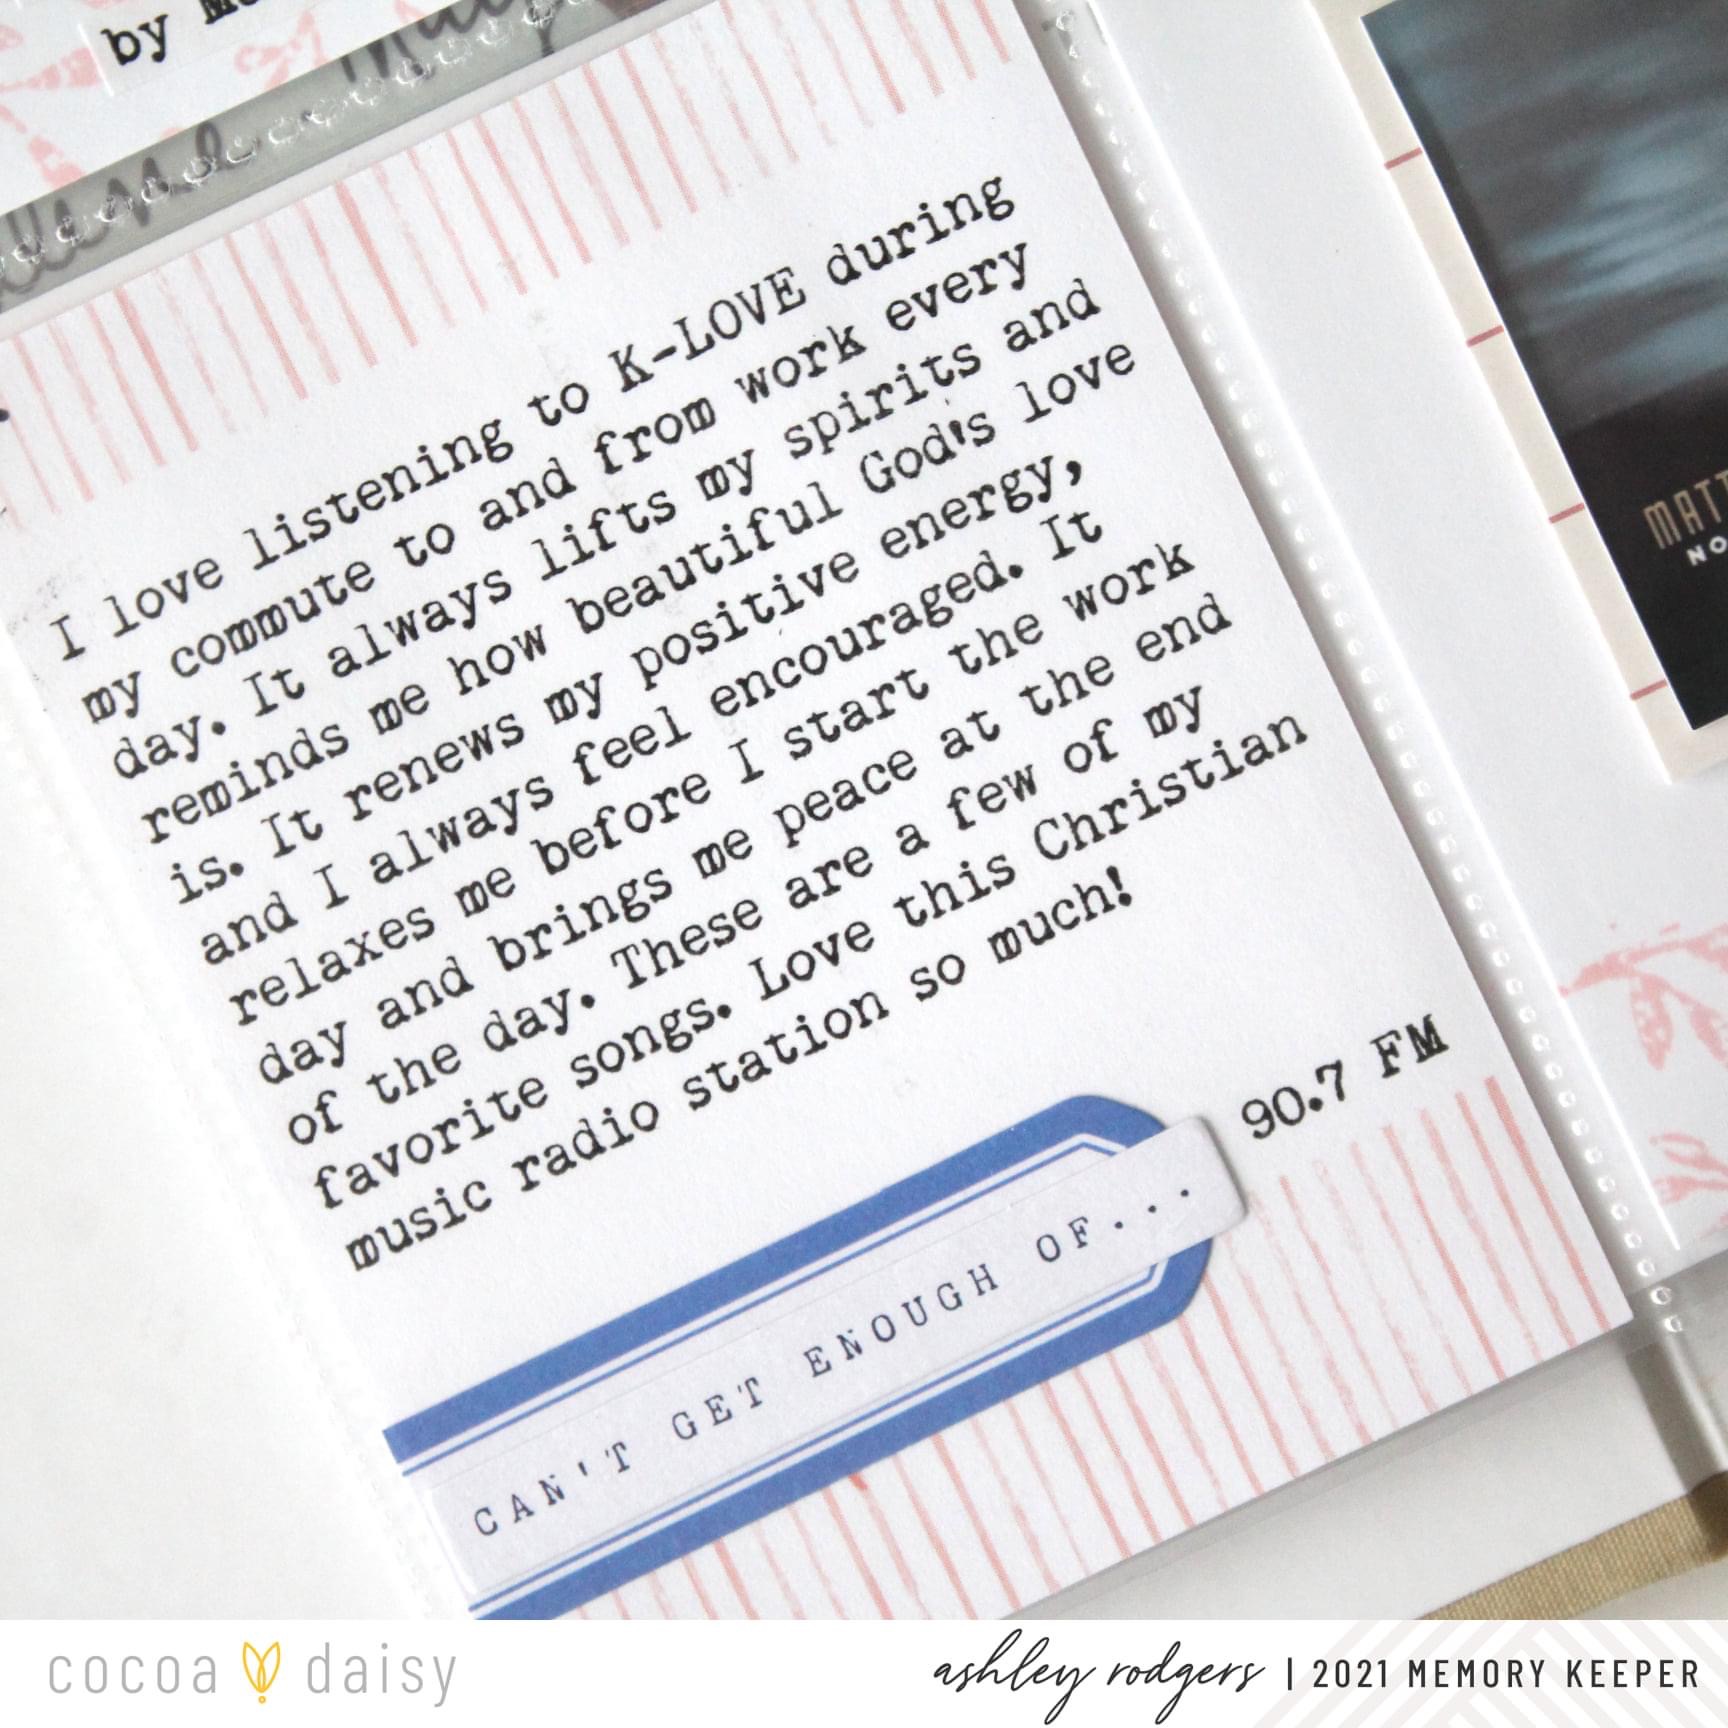 by
I love listening to K-LOVE during
my commute to and from work every
day. It always lifts my spirits and
reminds me how beautiful God's love
is. It renews my positive energy,
and I always feel encouraged. It
relaxes me before I start the work
day and brings me peace at the end
of the day. These are a few of my
favorite songs. Love this Christian
music radio station so much!
90.7 FM
CAN'T GET ENOUGH OF...
MATT
NO
cocoa daisy
ashley rodgers | 2021 MEMORY KEEPER